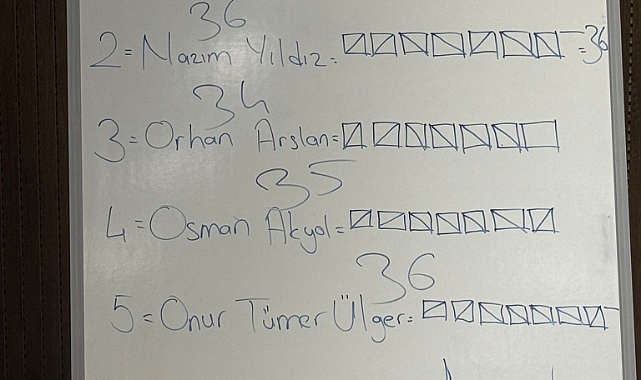 36
2= Nazım Yıldız: =36
34
3= Orhan Arslan=
35
4= Osman Akyol=
36
5= Onur Tümer Ülger=